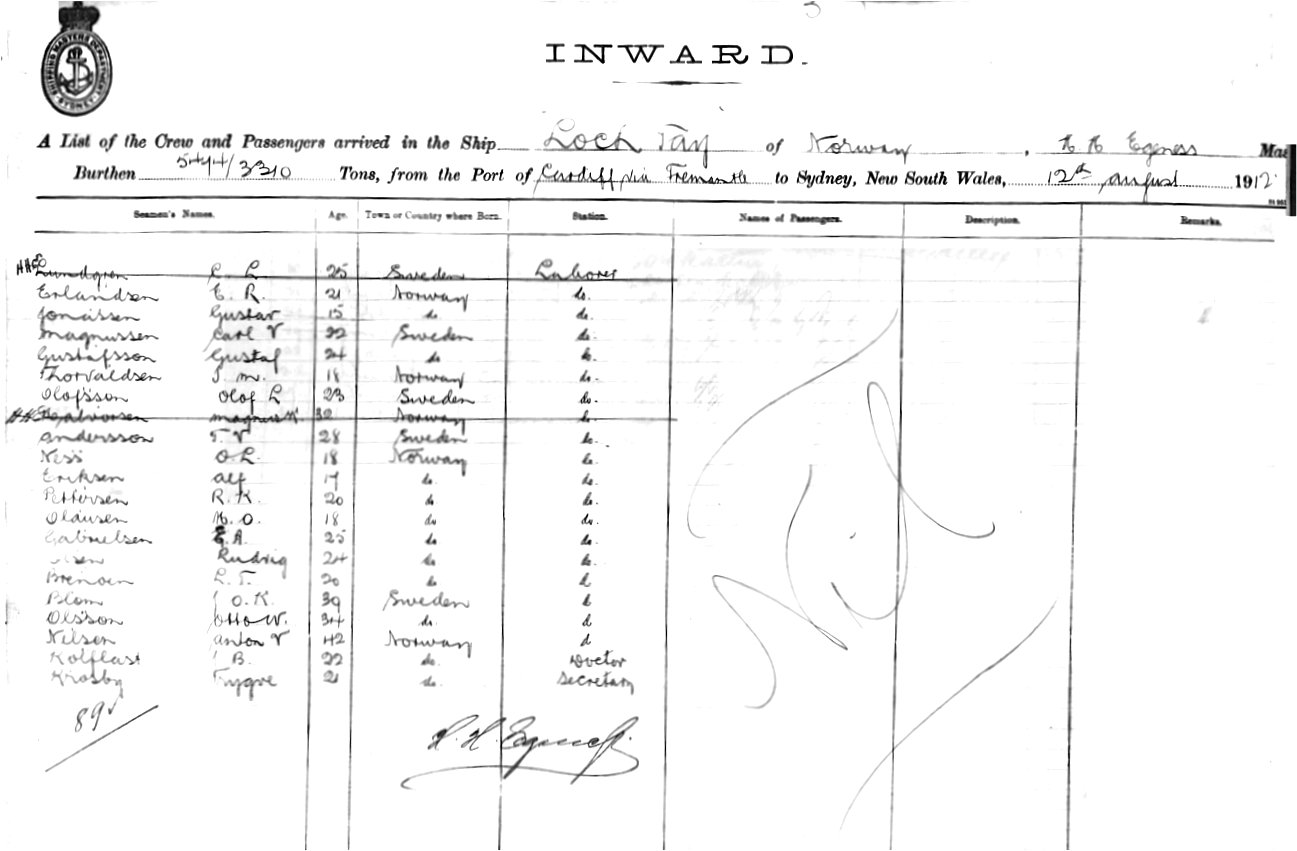 SHIPPING MASTERS DEPARTMENT SYDNEY
INWARD.
A List of the Crew and Passengers arrived in the Ship Loch Tay of Norway, H H Egeness Mas
Burthen 5474/3310 Tons, from the Port of Cardiff via Fremantle to Sydney, New South Wales, 12th August 1912
Seamen's Names. Age. Town or Country where Born. Station. Names of Passengers. Description. Remarks.
HHE Lundgren C. L 25 Sweden Laborer
Erlandsen E. R. 21 Norway do.
Jonassen Gustav 15 do do.
Magnussen Carl V 22 Sweden do.
Gustafsson Gustaf 24 do do.
Thorvaldsen T. M. 18 Norway do.
Olofsson Olof L 23 Sweden do.
HHE Halvorsen Magnus K 32 Norway do
Andersson T. V 28 Sweden do.
Ness O. L. 18 Norway do.
Eriksen Alf 17 do. do.
Pettersen R. K. 20 do do.
Olausen H. O. 18 do do.
Gabrielsen E. A. 25 do do.
Ludvig 24 do do.
L. T. 20 do d
Blom O. K. 39 Sweden d
Olsson Otto W. 34 do. d
Nilsen Anton V 42 Norway d
B. 22 do. Doctor
Krosby Trygve 21 do. Secretary
Nil
89
H. H. Egeness